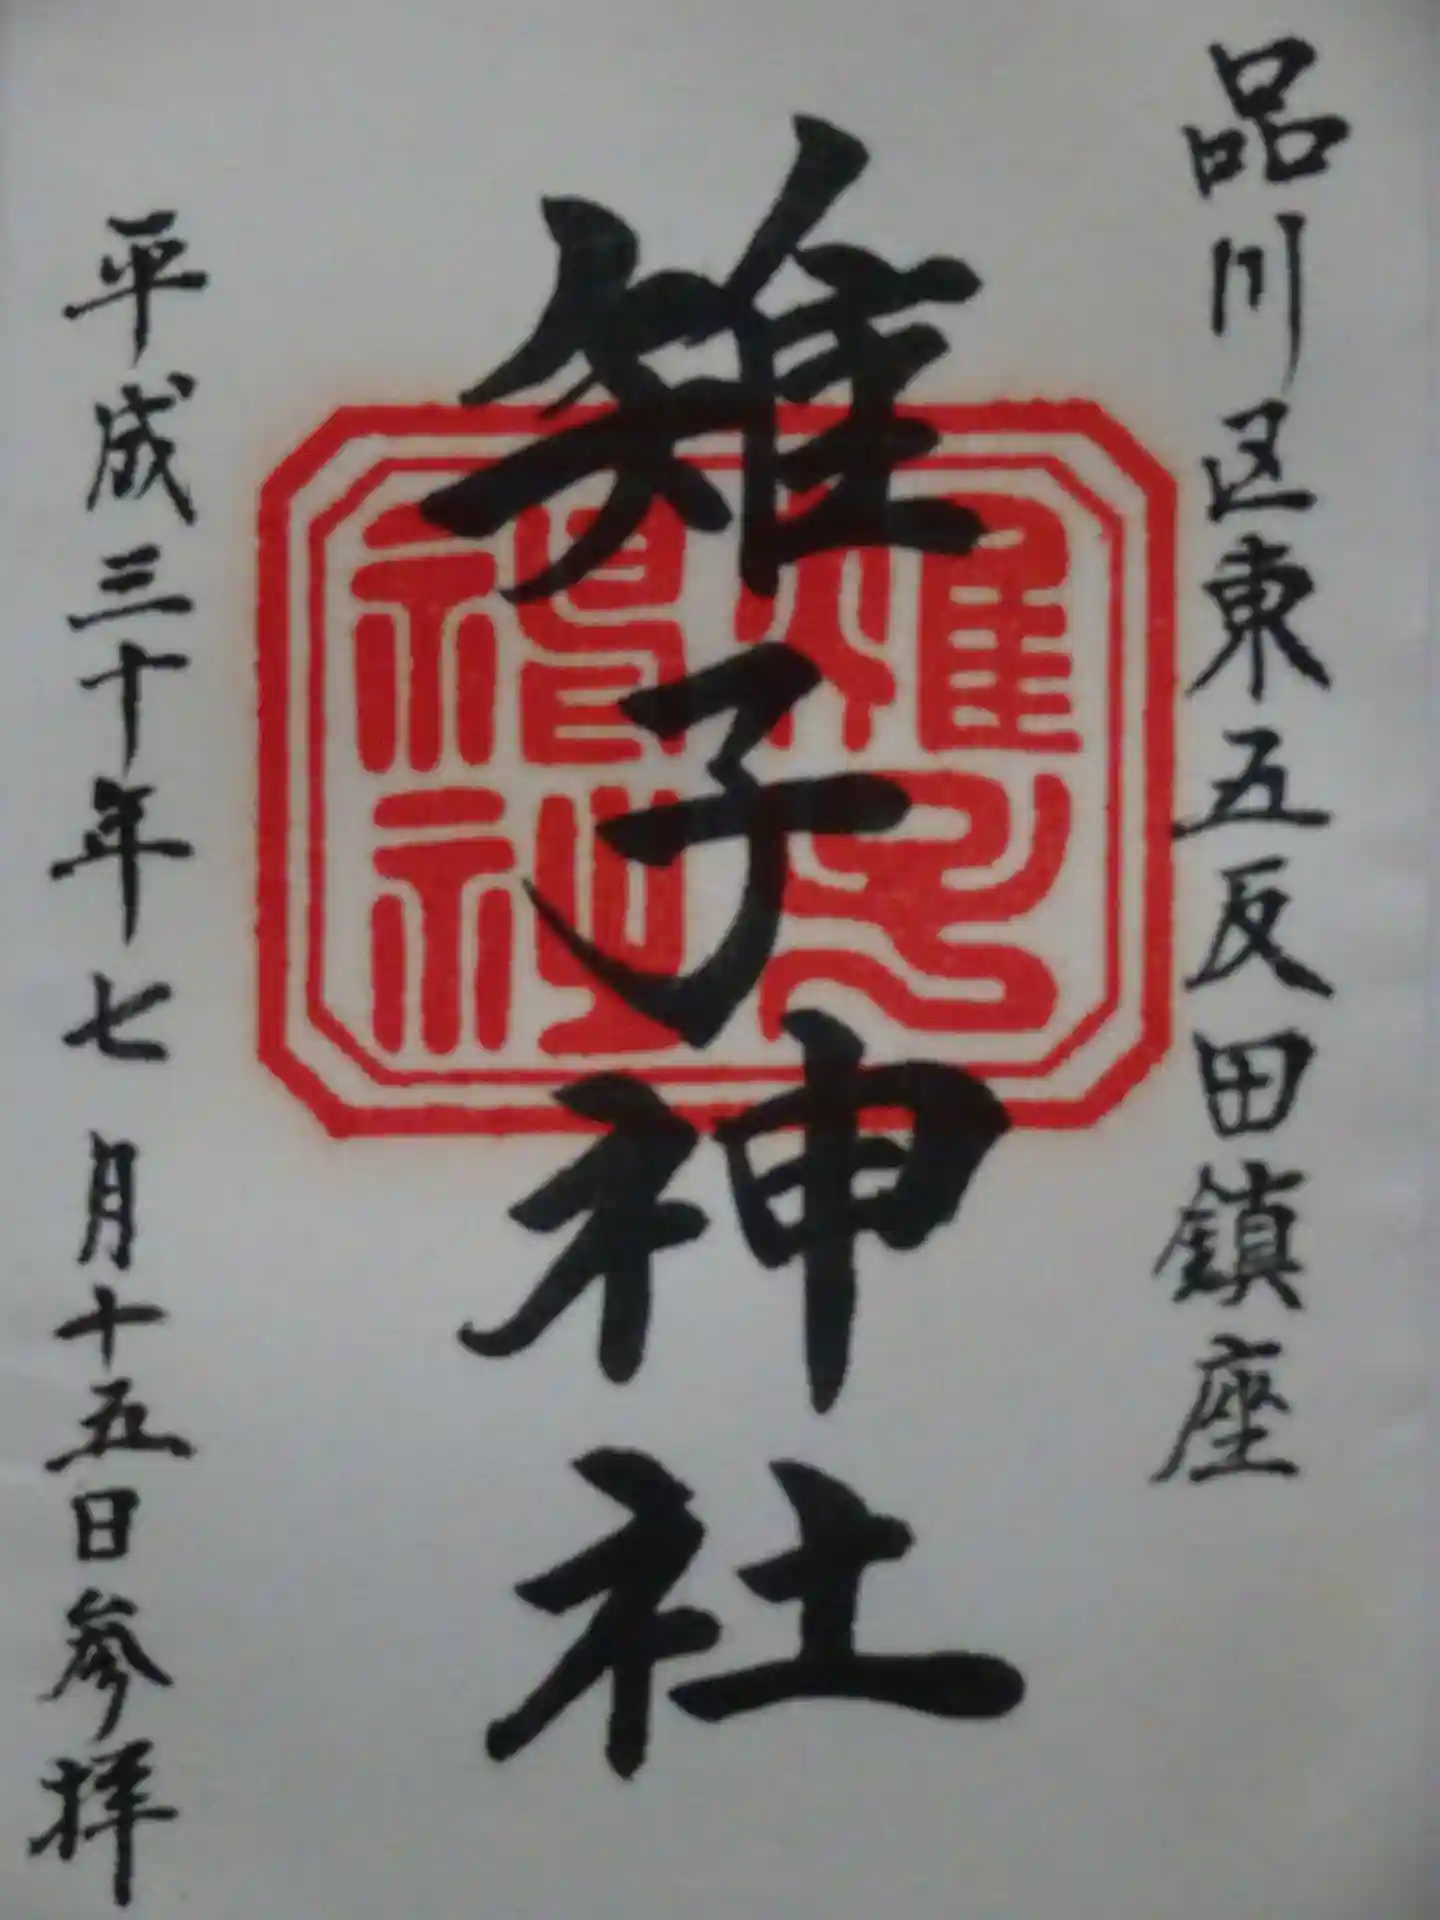 品川区東五反田鎮座
雉子神社
雉子神社
平成三十年七月十五日参拝